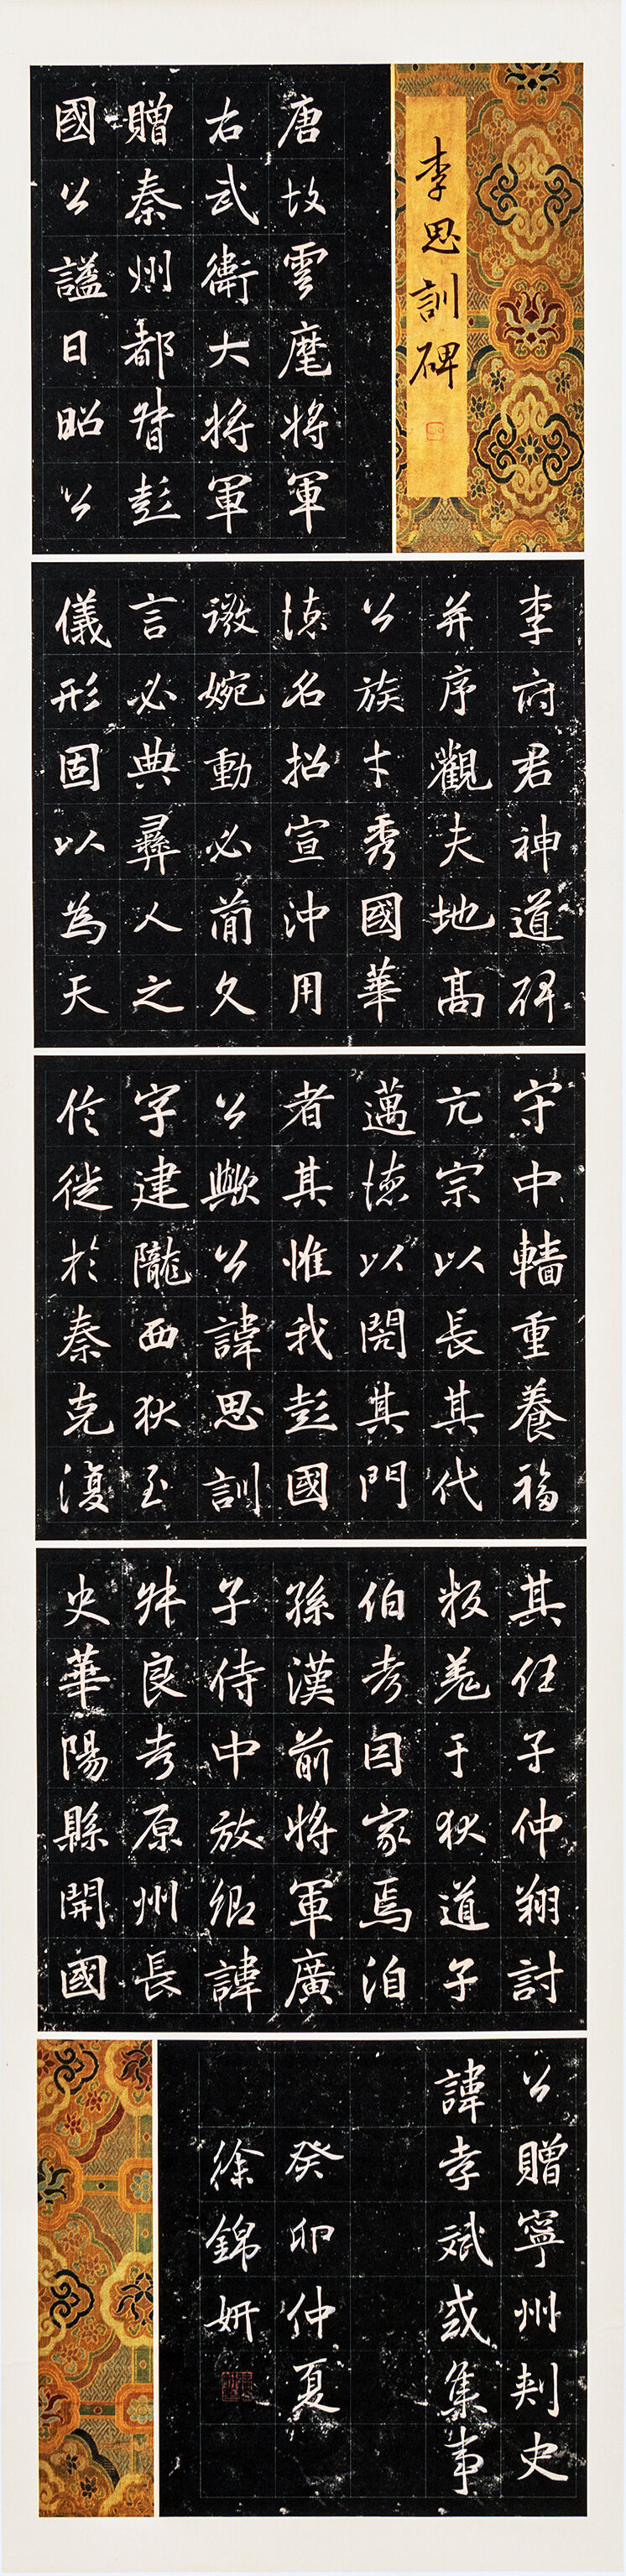 李思訓碑
唐故雲麾將軍
右武衛大將軍
贈秦州都督彭
國公謚曰昭公
李府君神道碑
并序觀夫地高
公族才秀國華
德名招宣沖用
微婉動必簡久
言必典彝人之
儀形固以為天
守中轖重養福
亢宗以長其代
邁德以閎其門
者其惟我彭國
公歟公諱思訓
字建隴西狄至
伶徙於秦克復
其任子仲翔討
叛羌于狄道子
伯考因家焉洎
孫漢前將軍廣
子侍中放卿諱
叔良考原州長
史華陽縣開國
公贈寧州刺史
諱孝斌或集事
癸卯仲夏
徐錦妍